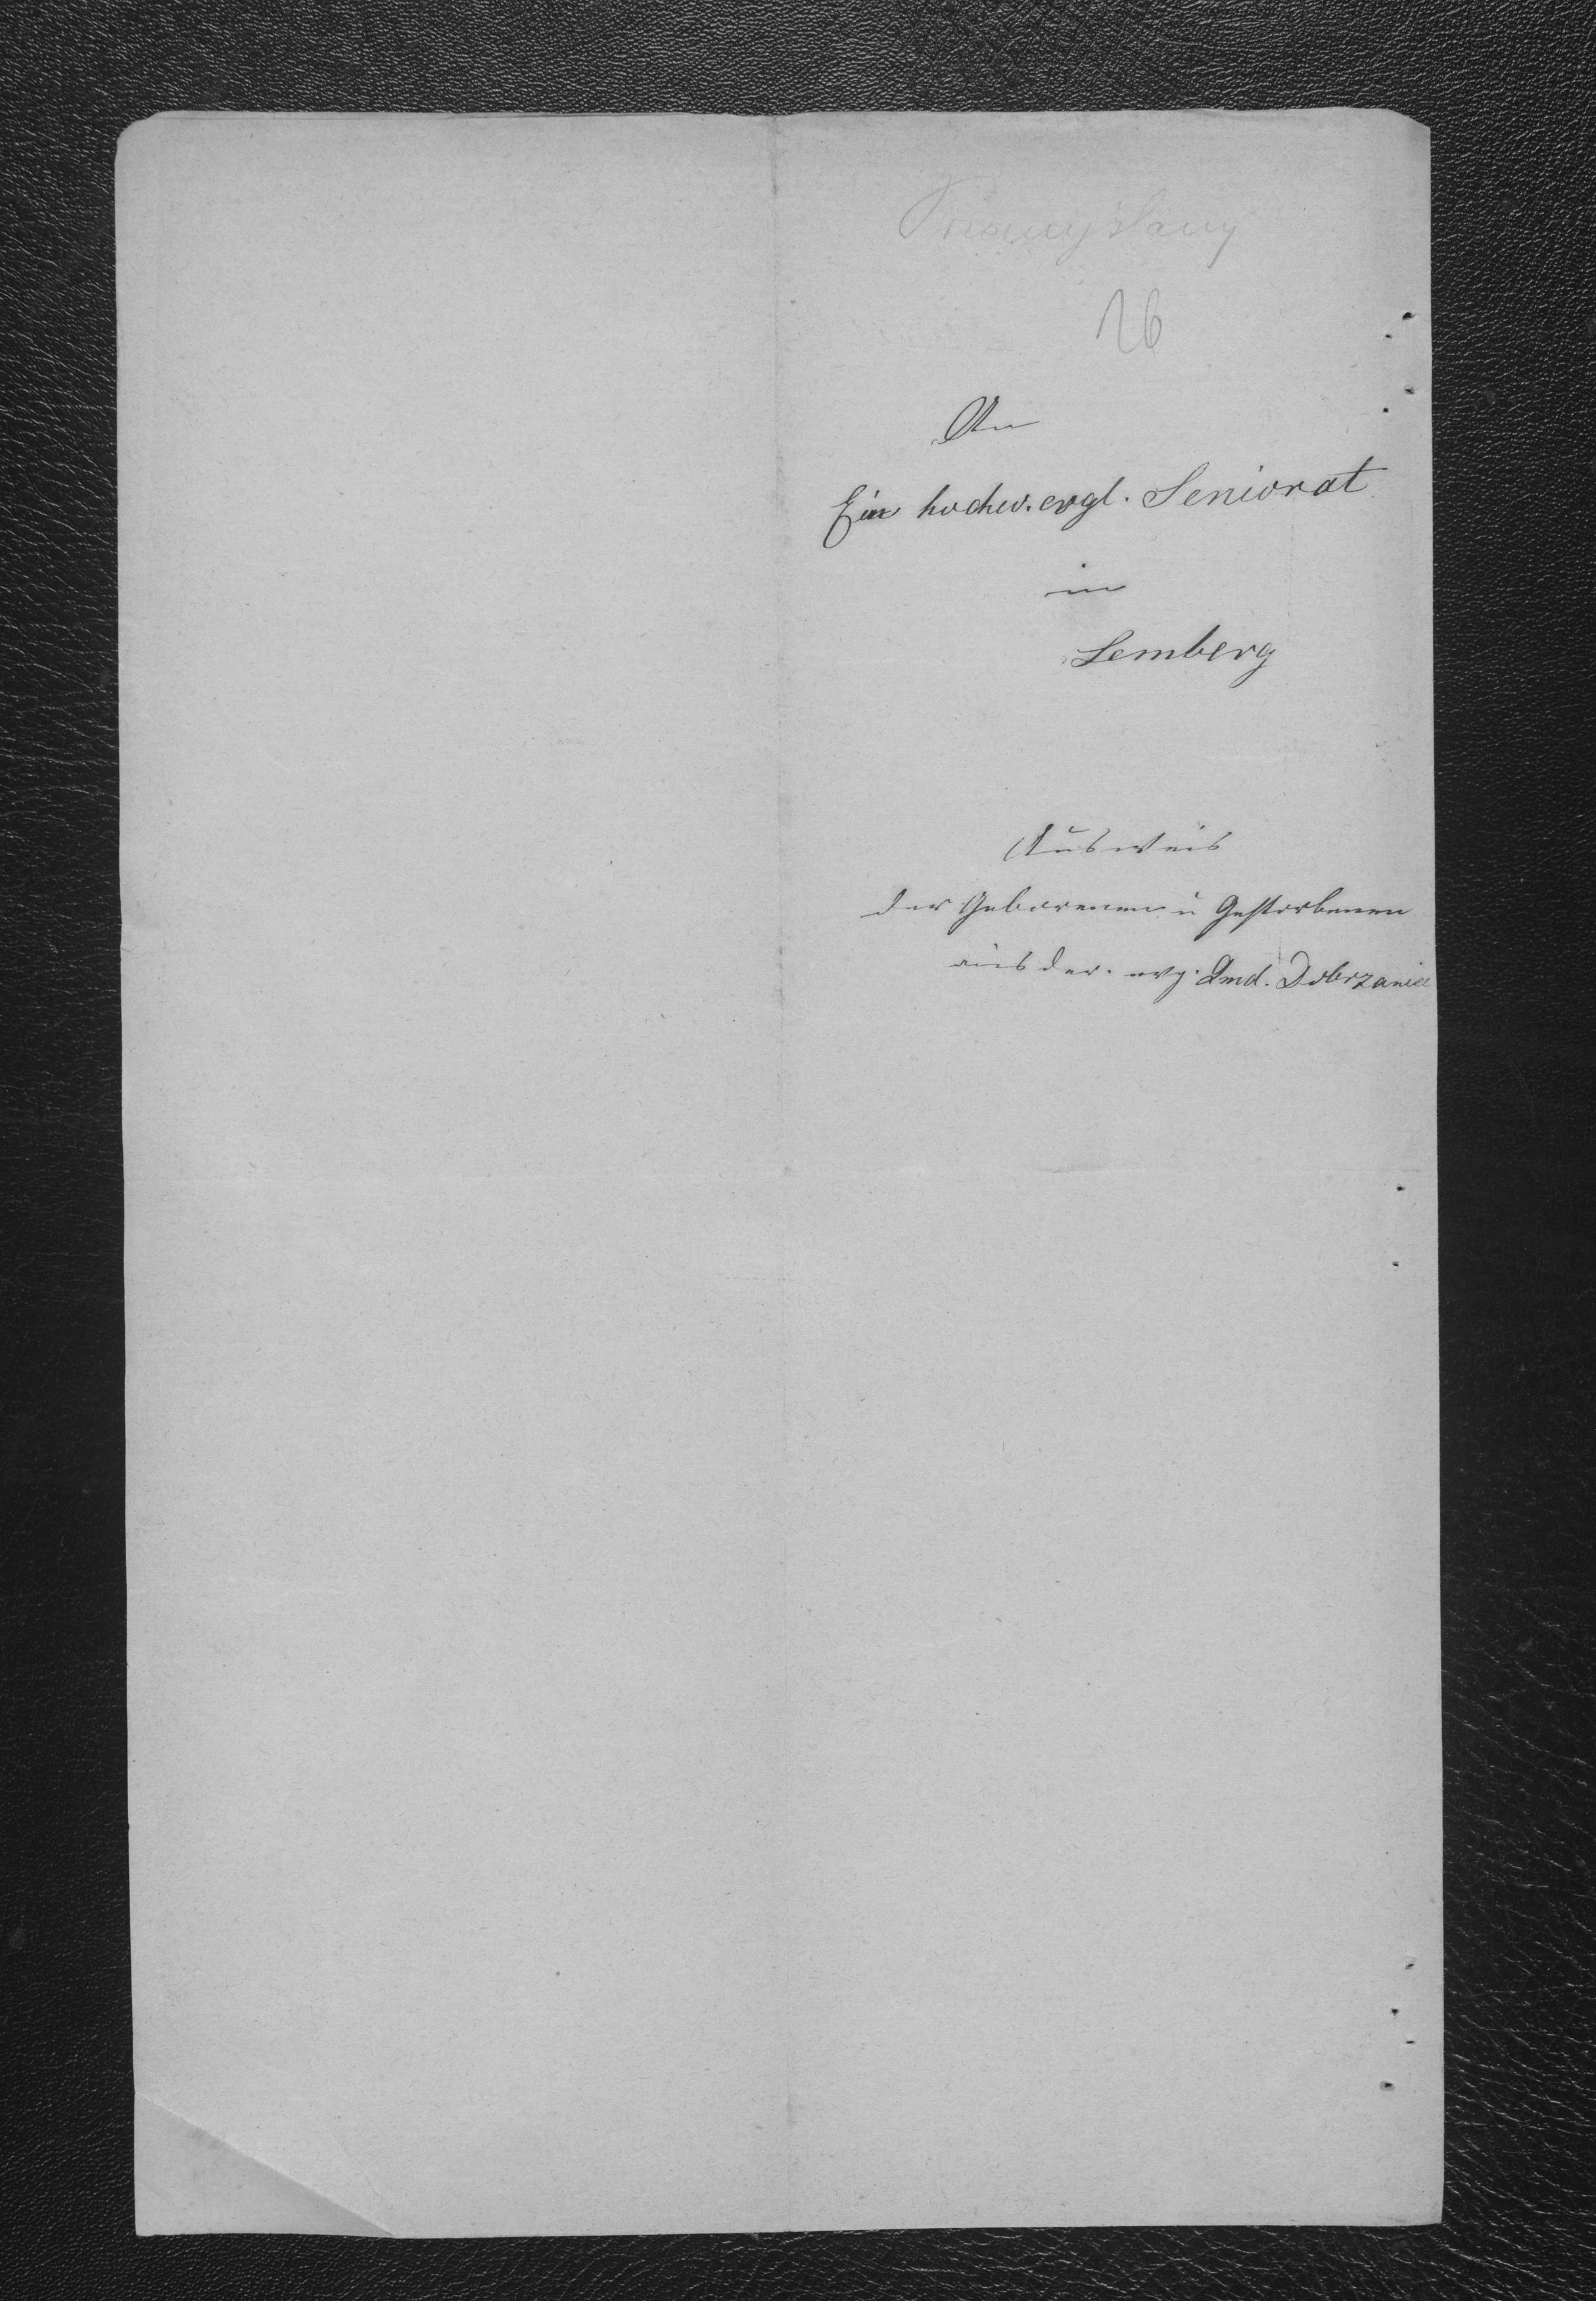 Przemyslany
26
An
Ein hochw. evgl. Seniorat
in
Lemberg
Ausweis
der Geborenen u Gestorbenen
aus der evg. Gmd. Dobrzanice